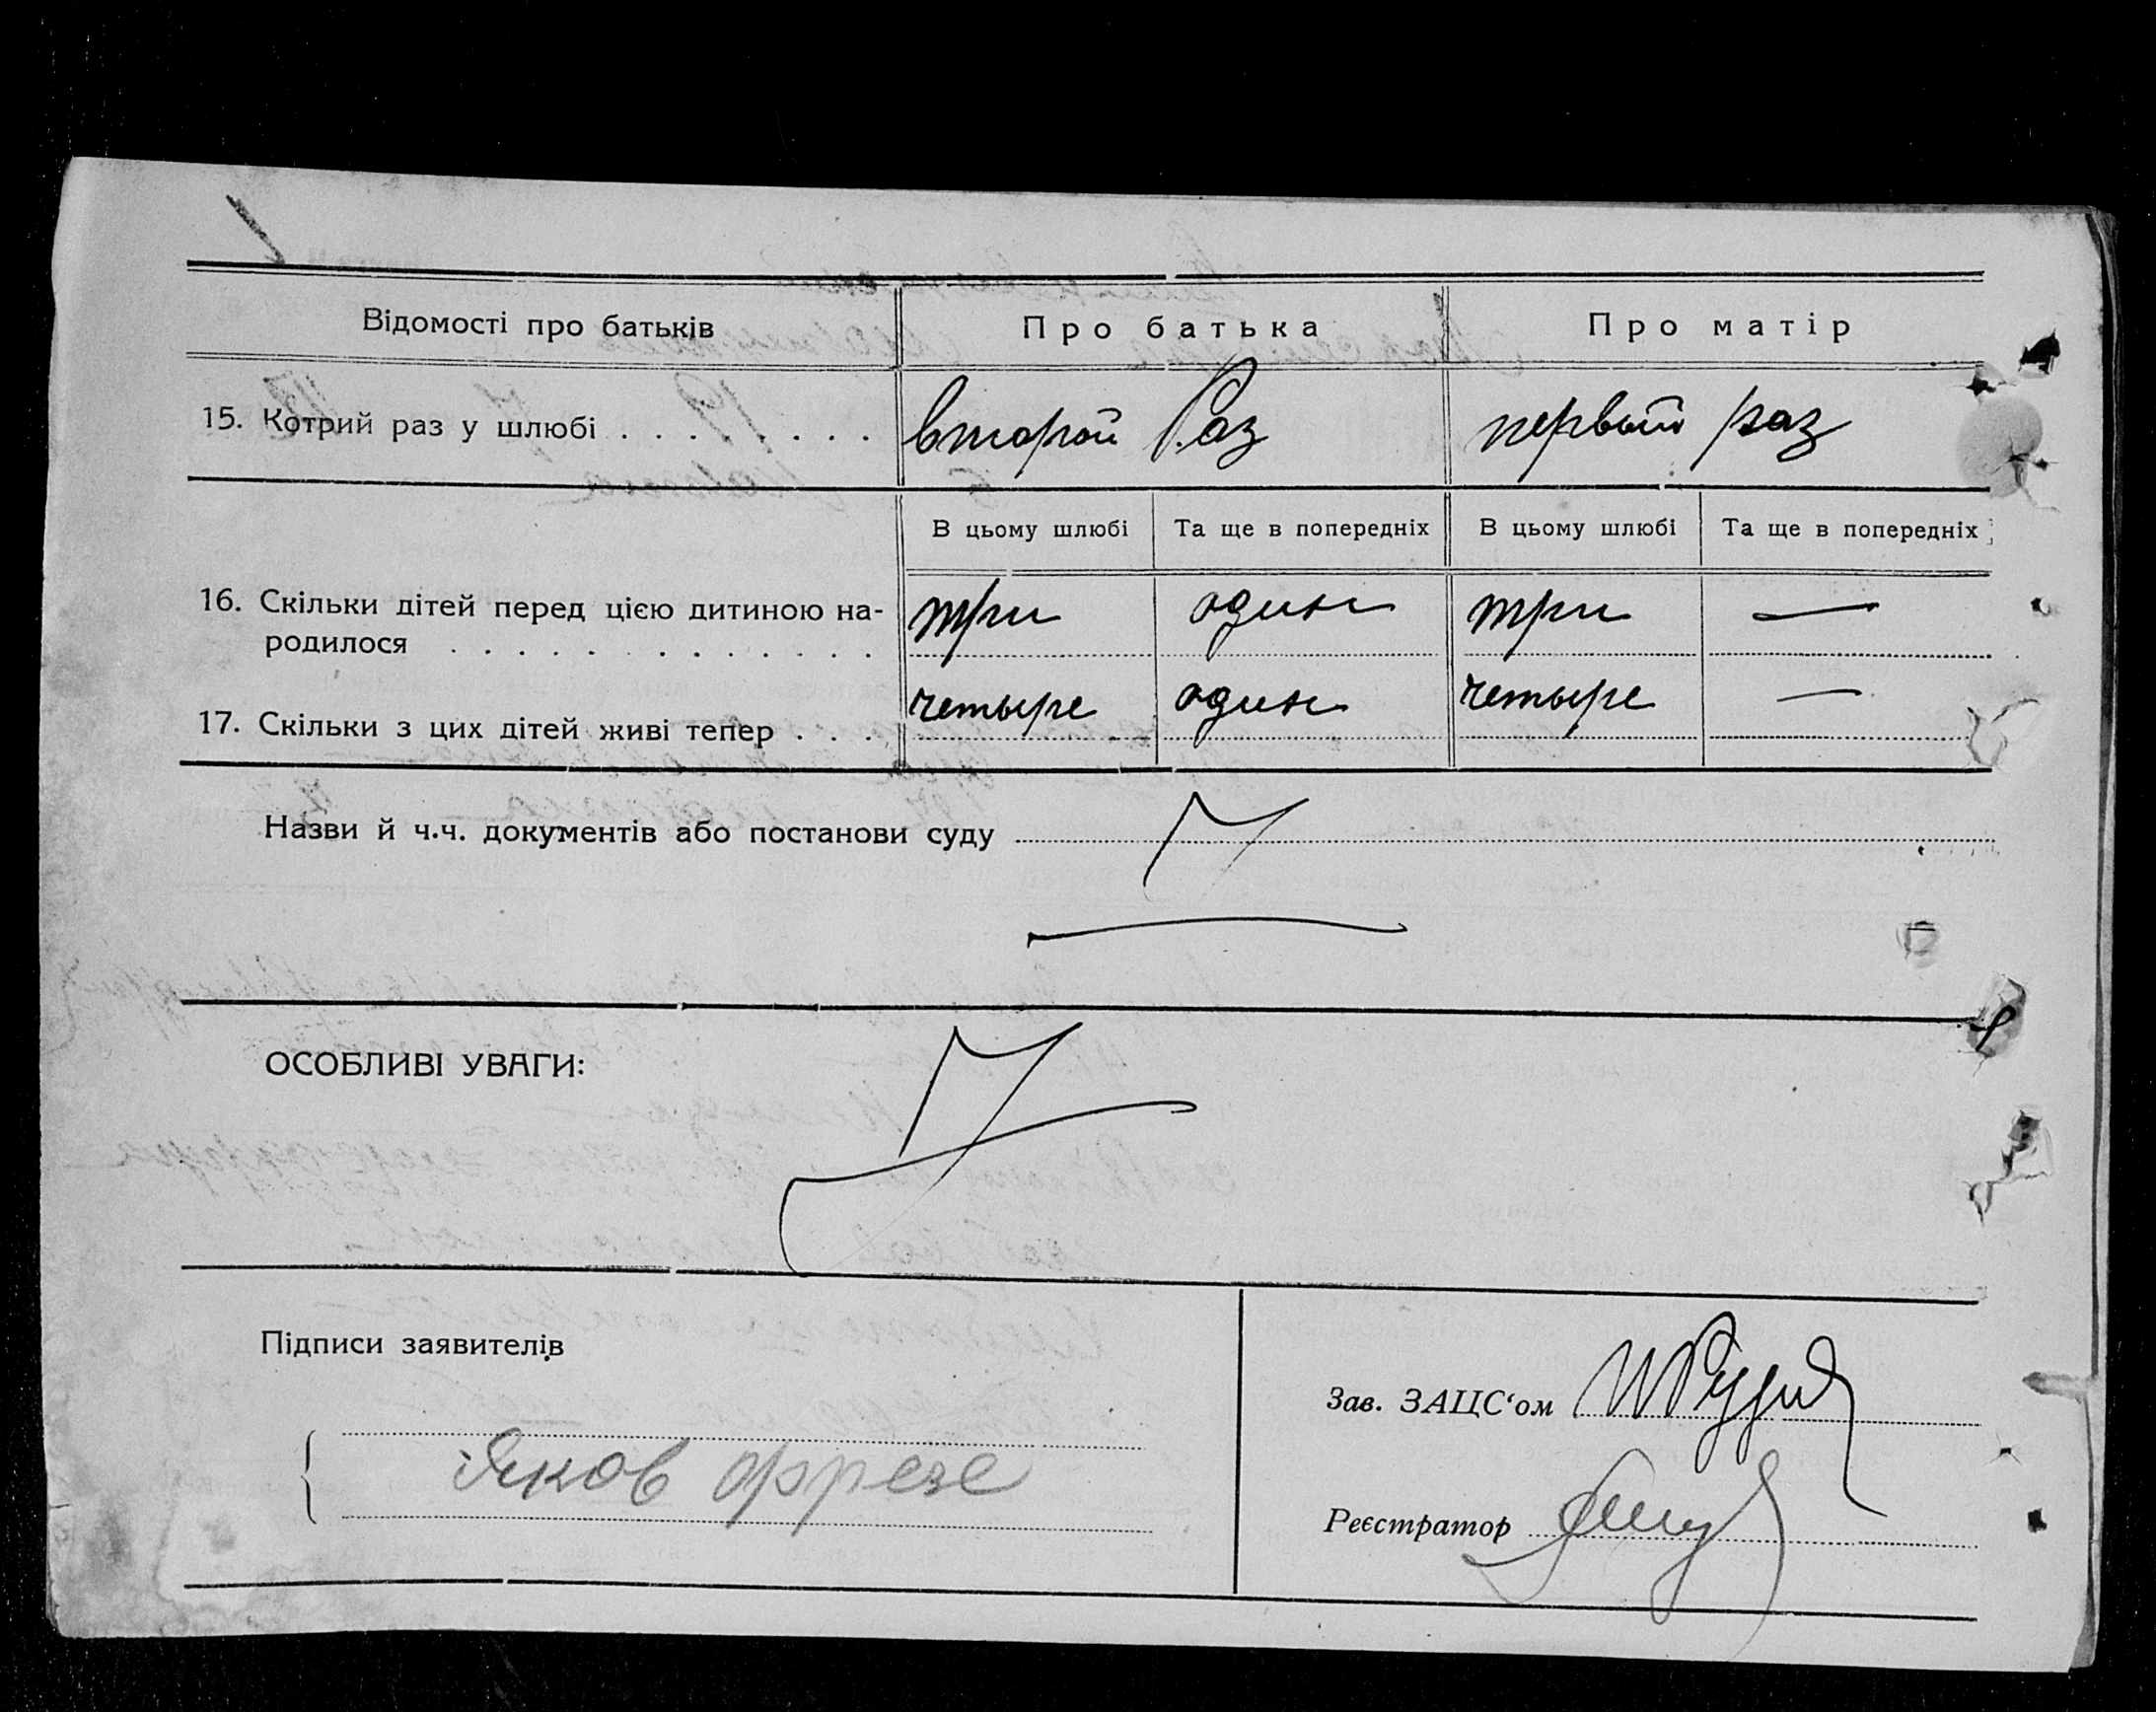 Відомості про батьків Про батька Про матір
15. Котрий раз у шлюбі . . . . . . . . второй Раз первый раз
В цьому шлюбі Та ще в попередніх В цьому шлюбі Та ще в попередніх
16. Скільки дітей перед цією дитиною на- три один три —
родилося . . . . . . . . . . . . .
17. Скільки з цих дітей живі тепер . . . четыре один четыре —
Назви й ч.ч. документів або постанови суду
ОСОБЛИВІ УВАГИ:
Підписи заявителів
Зав. ЗАЦС‘ом
Яков Фрезе
Реєстратор